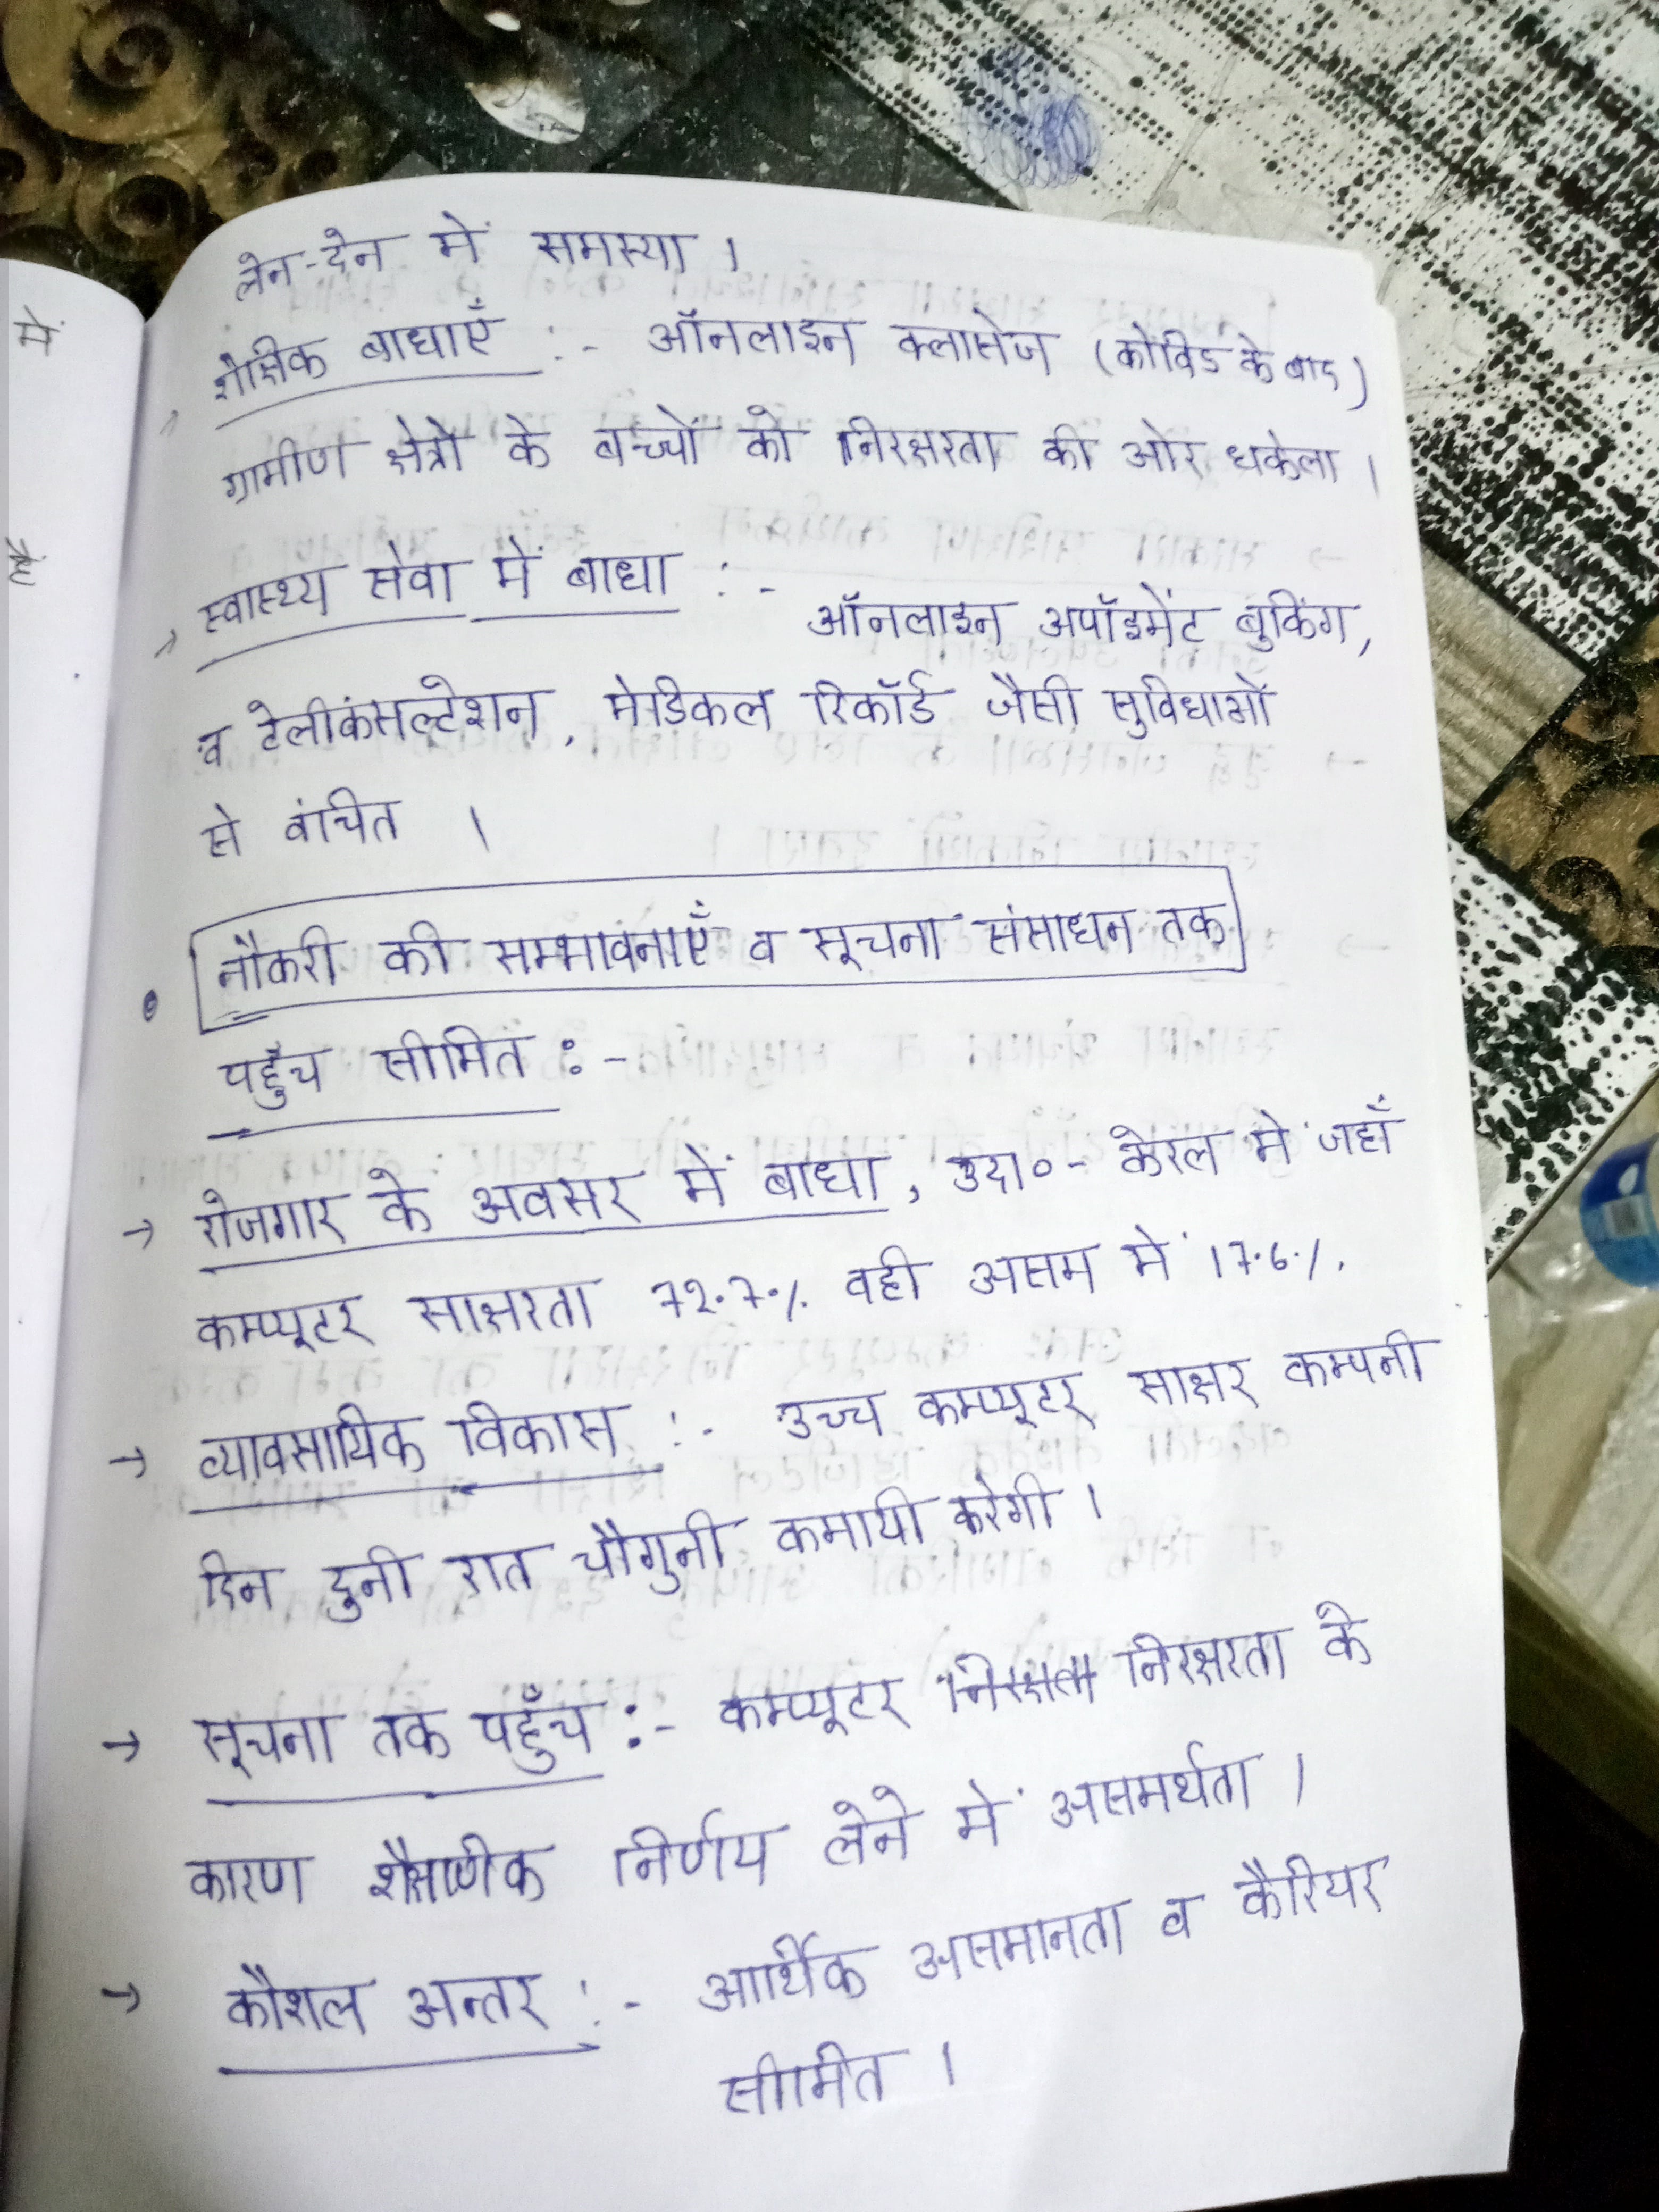 लेन-देन में समस्या ।
शैक्षिक बाधाएँ :- ऑनलाइन क्लासेज (कोविड के बाद)
ग्रामीण क्षेत्रों के बच्चों को निरक्षरता की ओर धकेला ।
→ स्वास्थ्य सेवा में बाधा :- ऑनलाइन अपॉइमेंट बुकिंग,
व टेलीकंसल्टेशन, मेडिकल रिकॉर्ड जैसी सुविधाओं
से वंचित ।
• नौकरी की सम्भावनाएँ व सूचना संसाधन तक
पहुँच सीमित :-
→ रोजगार के अवसर में बाधा, उदा०- केरल में जहाँ
कम्प्यूटर साक्षरता 72.7% वही असम में 17.6%.
→ व्यावसायिक विकास :- उच्च कम्प्यूटर साक्षर कम्पनी
दिन दुनी रात चौगुनी कमायी करेगी ।
→ सूचना तक पहुँच :- कम्प्यूटर निरक्षरता के
कारण शैक्षणिक निर्णय लेने में असमर्थता ।
→ कौशल अन्तर :- आर्थिक असमानता व कैरियर
सीमित ।
में
है